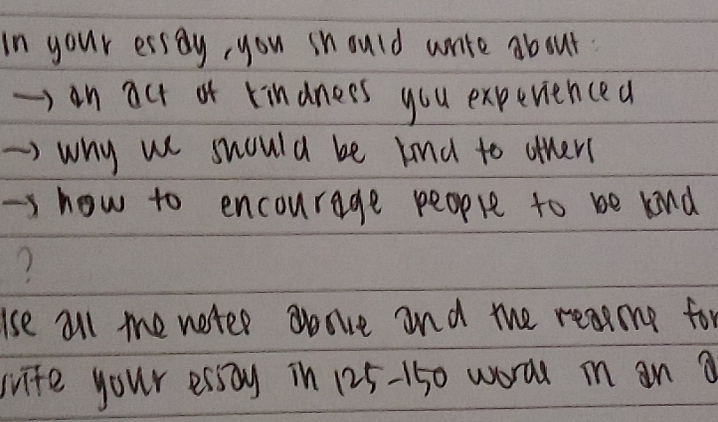 In your essay, you should write about:
→ an act of kindness you experienced
→ why we should be kind to others
→ how to encourage people to be kind
?
use all the notes above and the reasons for
write your essay in 125-150 words in an a